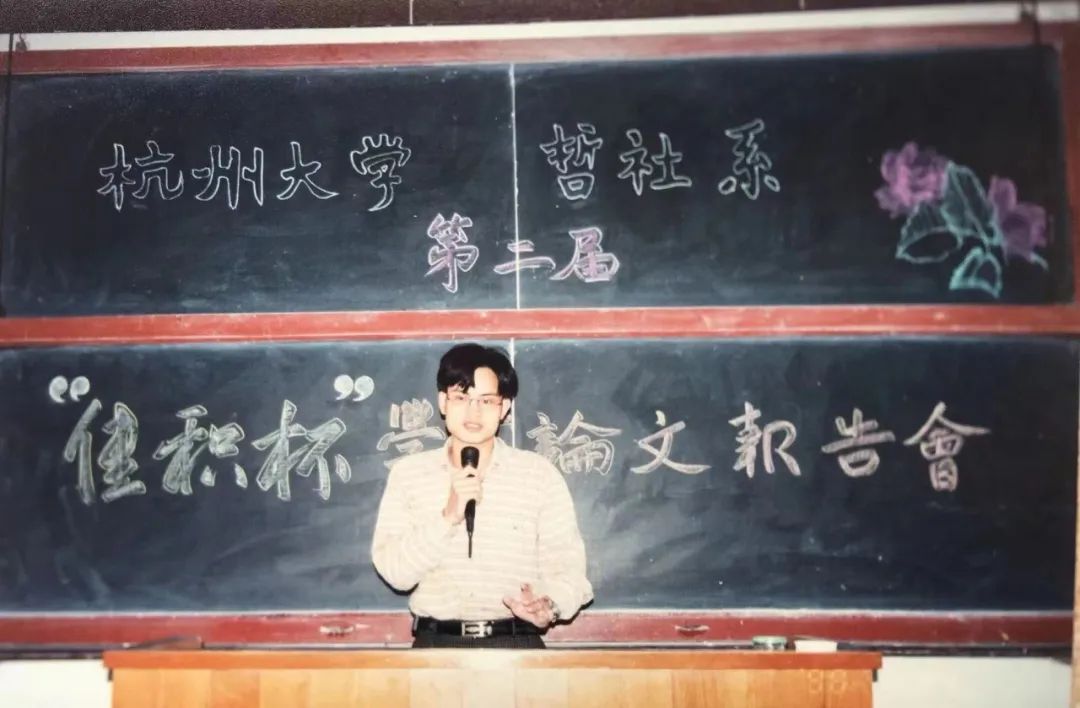 杭州大学 哲社系
第二届
“佳积杯”學論文報告會